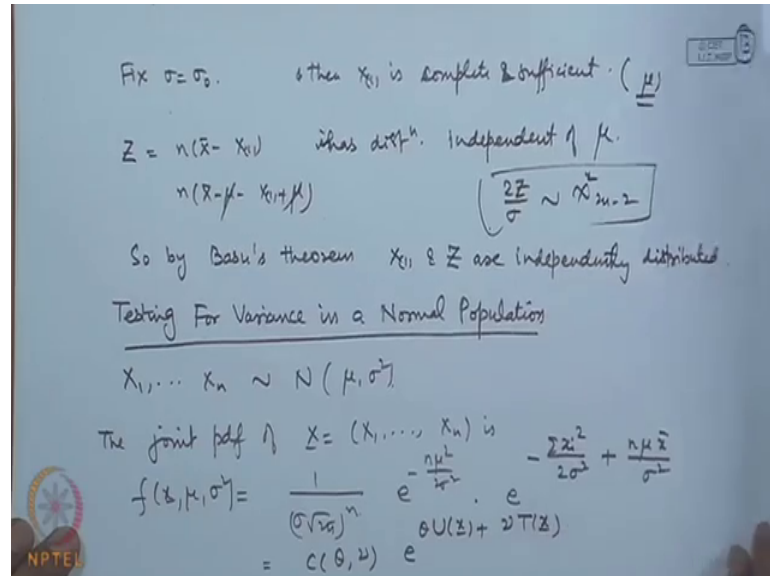 © CET
I.I.T. KGP
Fix σ = σ₀. then X₍₁₎ is complete & sufficient. (μ)
Z = n(x̄ - X₍₁₎) has distⁿ. independent of μ.
n(x̄-μ - X₍₁₎+μ) 2Z/σ ~ χ²₂ₙ₋₂
So by Basu's theorem X₍₁₎ & Z are independently distributed.
Testing For Variance in a Normal Population
X₁, ... Xₙ ~ N(μ, σ²)
The joint pdf of X = (X₁, ..., Xₙ) is
f(x, μ, σ²) = 1/(σ√2π)ⁿ e^(-nμ²/2σ²) . e^(-Σxᵢ²/2σ² + nμx̄/σ²)
= C(θ, ν) e^(θU(x) + νT(x))
NPTEL